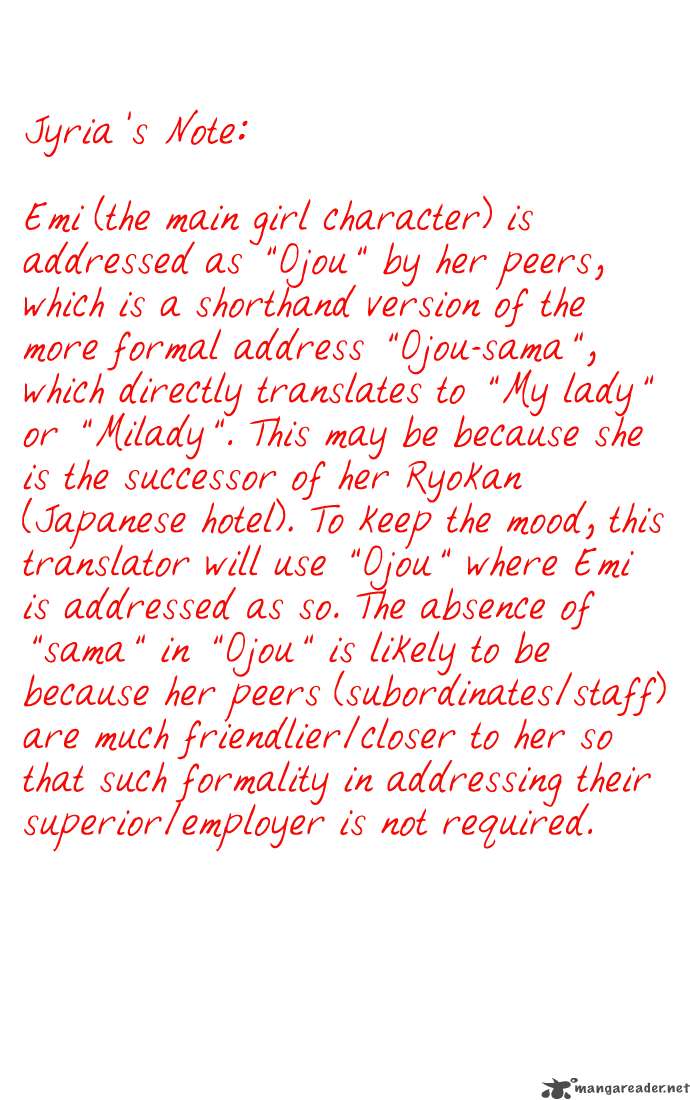 Jyria's Note:
Emi (the main girl character) is
addressed as "Ojou" by her peers,
which is a shorthand version of the
more formal address "Ojou-sama",
which directly translates to "My lady"
or "Milady". This may be because she
is the successor of her Ryokan
(Japanese hotel). To keep the mood, this
translator will use "Ojou" where Emi
is addressed as so. The absence of
"sama" in "Ojou" is likely to be
because her peers (subordinates/staff)
are much friendlier/closer to her so
that such formality in addressing their
superior/employer is not required.
mangareader.net